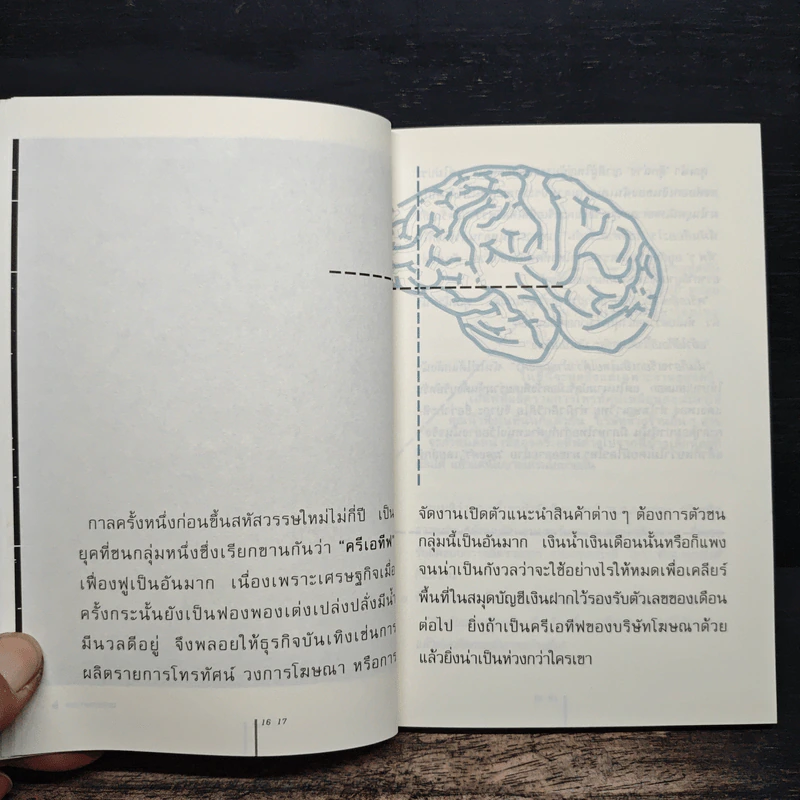 กาลครั้งหนึ่งก่อนขึ้นสหัสวรรษใหม่ไม่กี่ปี เป็น
ยุคที่ชนกลุ่มหนึ่งซึ่งเรียกขานกันว่า “ครีเอทีฟ”
เฟื่องฟูเป็นอันมาก เนื่องเพราะเศรษฐกิจเมื่อ
ครั้งกระนั้นยังเป็นฟองพองเต่งเปล่งปลั่งมีน้ำ
มีนวลดีอยู่ จึงพลอยให้ธุรกิจบันเทิงเช่นการ
ผลิตรายการโทรทัศน์ วงการโฆษณา หรือการ
16 17
จัดงานเปิดตัวแนะนำสินค้าต่าง ๆ ต้องการตัวชน
กลุ่มนี้เป็นอันมาก เงินน้ำเงินเดือนนั้นหรือก็แพง
จนน่าเป็นกังวลว่าจะใช้อย่างไรให้หมดเพื่อเคลียร์
พื้นที่ในสมุดบัญชีเงินฝากไว้รองรับตัวเลขของเดือน
ต่อไป ยิ่งถ้าเป็นครีเอทีฟของบริษัทโฆษณาด้วย
แล้วยิ่งน่าเป็นห่วงกว่าใครเขา